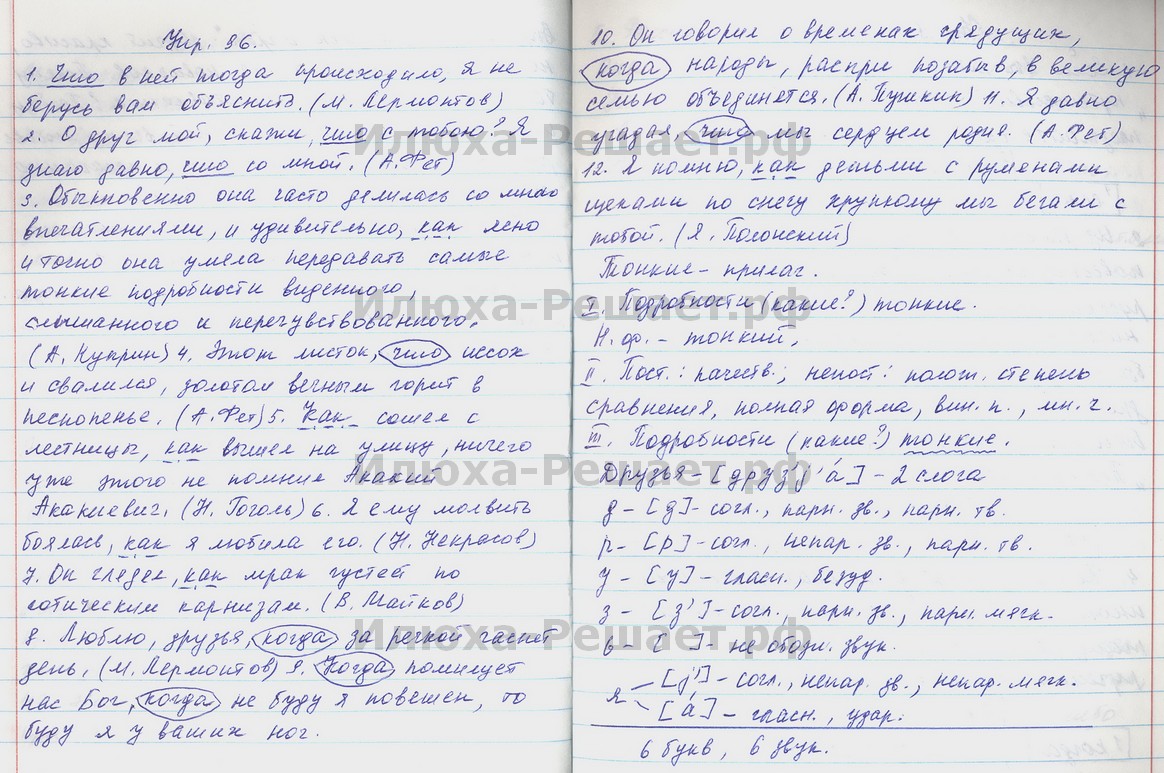 Упр. 96.
1. Что в ней тогда происходило, я не
берусь вам объяснить. (М. Лермонтов)
2. О друг мой, скажи, что с тобою? Я
знаю давно, что со мной. (А. Фет)
3. Обыкновенно она часто делилась со мною
впечатлениями, и удивительно, как ясно
и точно она умела передавать самые
тонкие подробности виденного,
слышанного и перечувствованного.
(А. Куприн) 4. Этот листок, что иссох
и свалился, золотом вечным горит в
песнопенье. (А. Фет) 5. Как сошел с
лестницы, как вышел на улицу, ничего
уже этого не помнил Акакий
Акакиевич. (Н. Гоголь) 6. Я ему молвить
боялась, как я любила его. (Н. Некрасов)
7. Он глядел, как мрак густеет по
готическим карнизам. (В. Майков)
8. Люблю, друзья, когда за речкой гаснет
день. (М. Лермонтов) 9. Когда помилует
нас Бог, когда не буду я повешен, то
буду я у ваших ног.
10. Он говорил о временах грядущих,
когда народы, распри позабыв, в великую
семью объединятся. (А. Пушкин) 11. Я давно
угадал, что мы сердцем родня. (А. Фет)
12. Я помню, как детьми с румеными
щеками по снегу хрупкому мы бегали с
тобой. (Я. Полонский)
Тонкие - прилаг.
I. Подробности (какие?) тонкие.
Н. ф. - тонкий.
II. Пост.: качеств.; непост: полож. степень
сравнения, полная форма, вин. п., мн. ч.
III. Подробности (какие?) тонкие.
Друзья - [друз'j'а́] - 2 слога
д - [д] - согл., парн. зв., парн. тв.
р - [р] - согл., непар. зв., парн. тв.
у - [у] - гласн., безуд.
з - [з'] - согл., парн. зв., парн. мягк.
ь - [ ] - не обозн. звук.
я [j'] - согл., непар. зв., непар. мягк.
[а́] - гласн., удар.
6 букв, 6 звук.
Илюха-Решает.рф
Илюха-Решает.рф
Илюха-Решает.рф
Илюха-Решает.рф